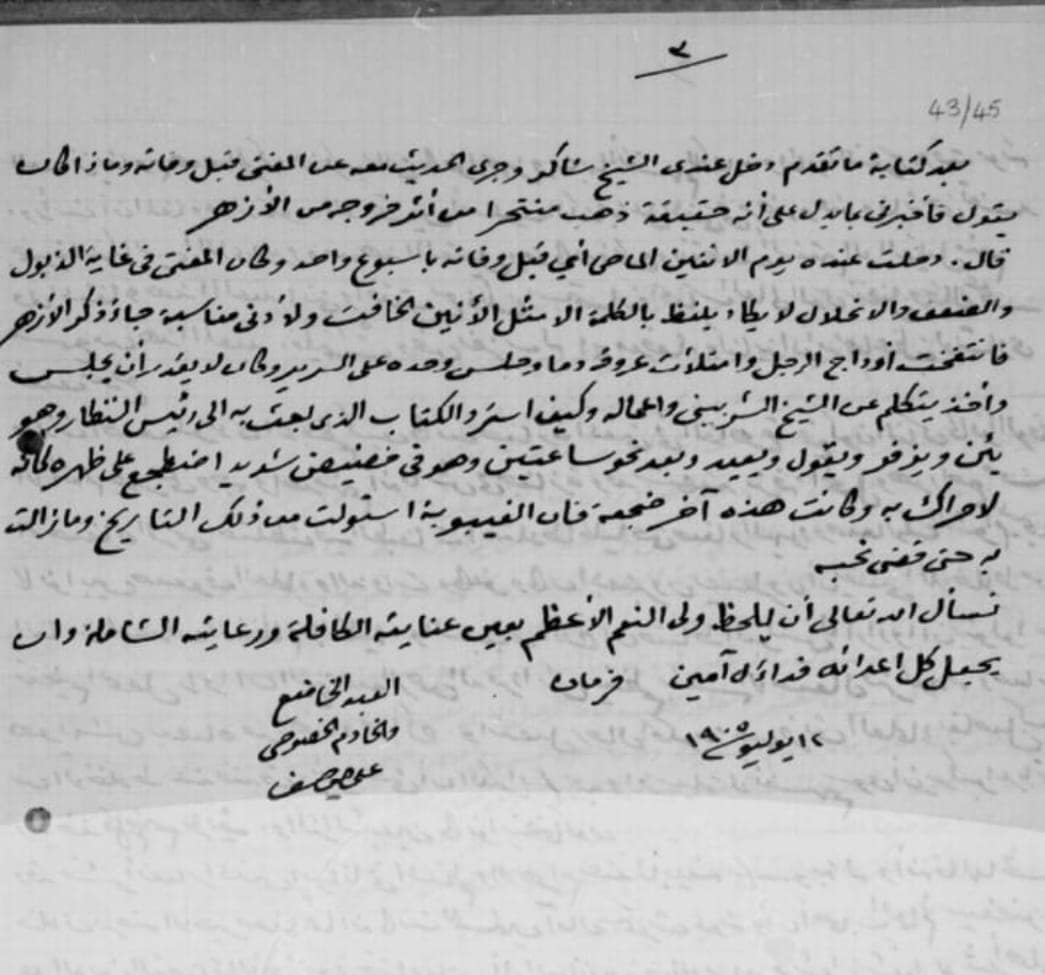 ٢
43/45
بعد كتابة ما تقدم دخل عندى الشيخ شاكر وجرى الحديث معه عن المفتى قبل وفاته وماذا كان
يقول فأخبرنى بما يدل على أنه حقيقة ذهب منتحرا من أثر خروجه من الأزهر
قال. دخلت عنده يوم الاثنين الماضى أي قبل وفاته باسبوع واحد وكان المفتى فى غاية الذبول
والضعف والانحلال لا يكاد يلفظ بالكلمة الا مثل الأنين الخافت ولأدنى مناسبة جاء ذكر الأزهر
فانتفخت أوداج الرجل وامتلأت عروقه دما وجلس وحده على السرير وكان لا يقدر أن يجلس
وأخذ يتكلم عن الشيخ الشربينى واعماله وكيف استرد الكتاب الذى بعث به الى رئيس النظار وهو
يئن ويزفر ويقول ويعيد وبعد نحو ساعتين وهو فى حضيض شديد اضطجع على ظهره كأنه
لا حراك به وكانت هذه آخر ضجعة فان الغيبوبة استولت من ذلك التاريخ وما زالت
به حتى قضى نحبه
نسأل الله تعالى أن يلحظ ولى النعم الأعظم بعين عنايته الكافلة ورعايته الشاملة وان
يجعل كل اعدائه فداء له آمين
العبد الخاضع
والخادم الخصوصى
١٢ يوليو سنة ١٩٠٥
على يوسف